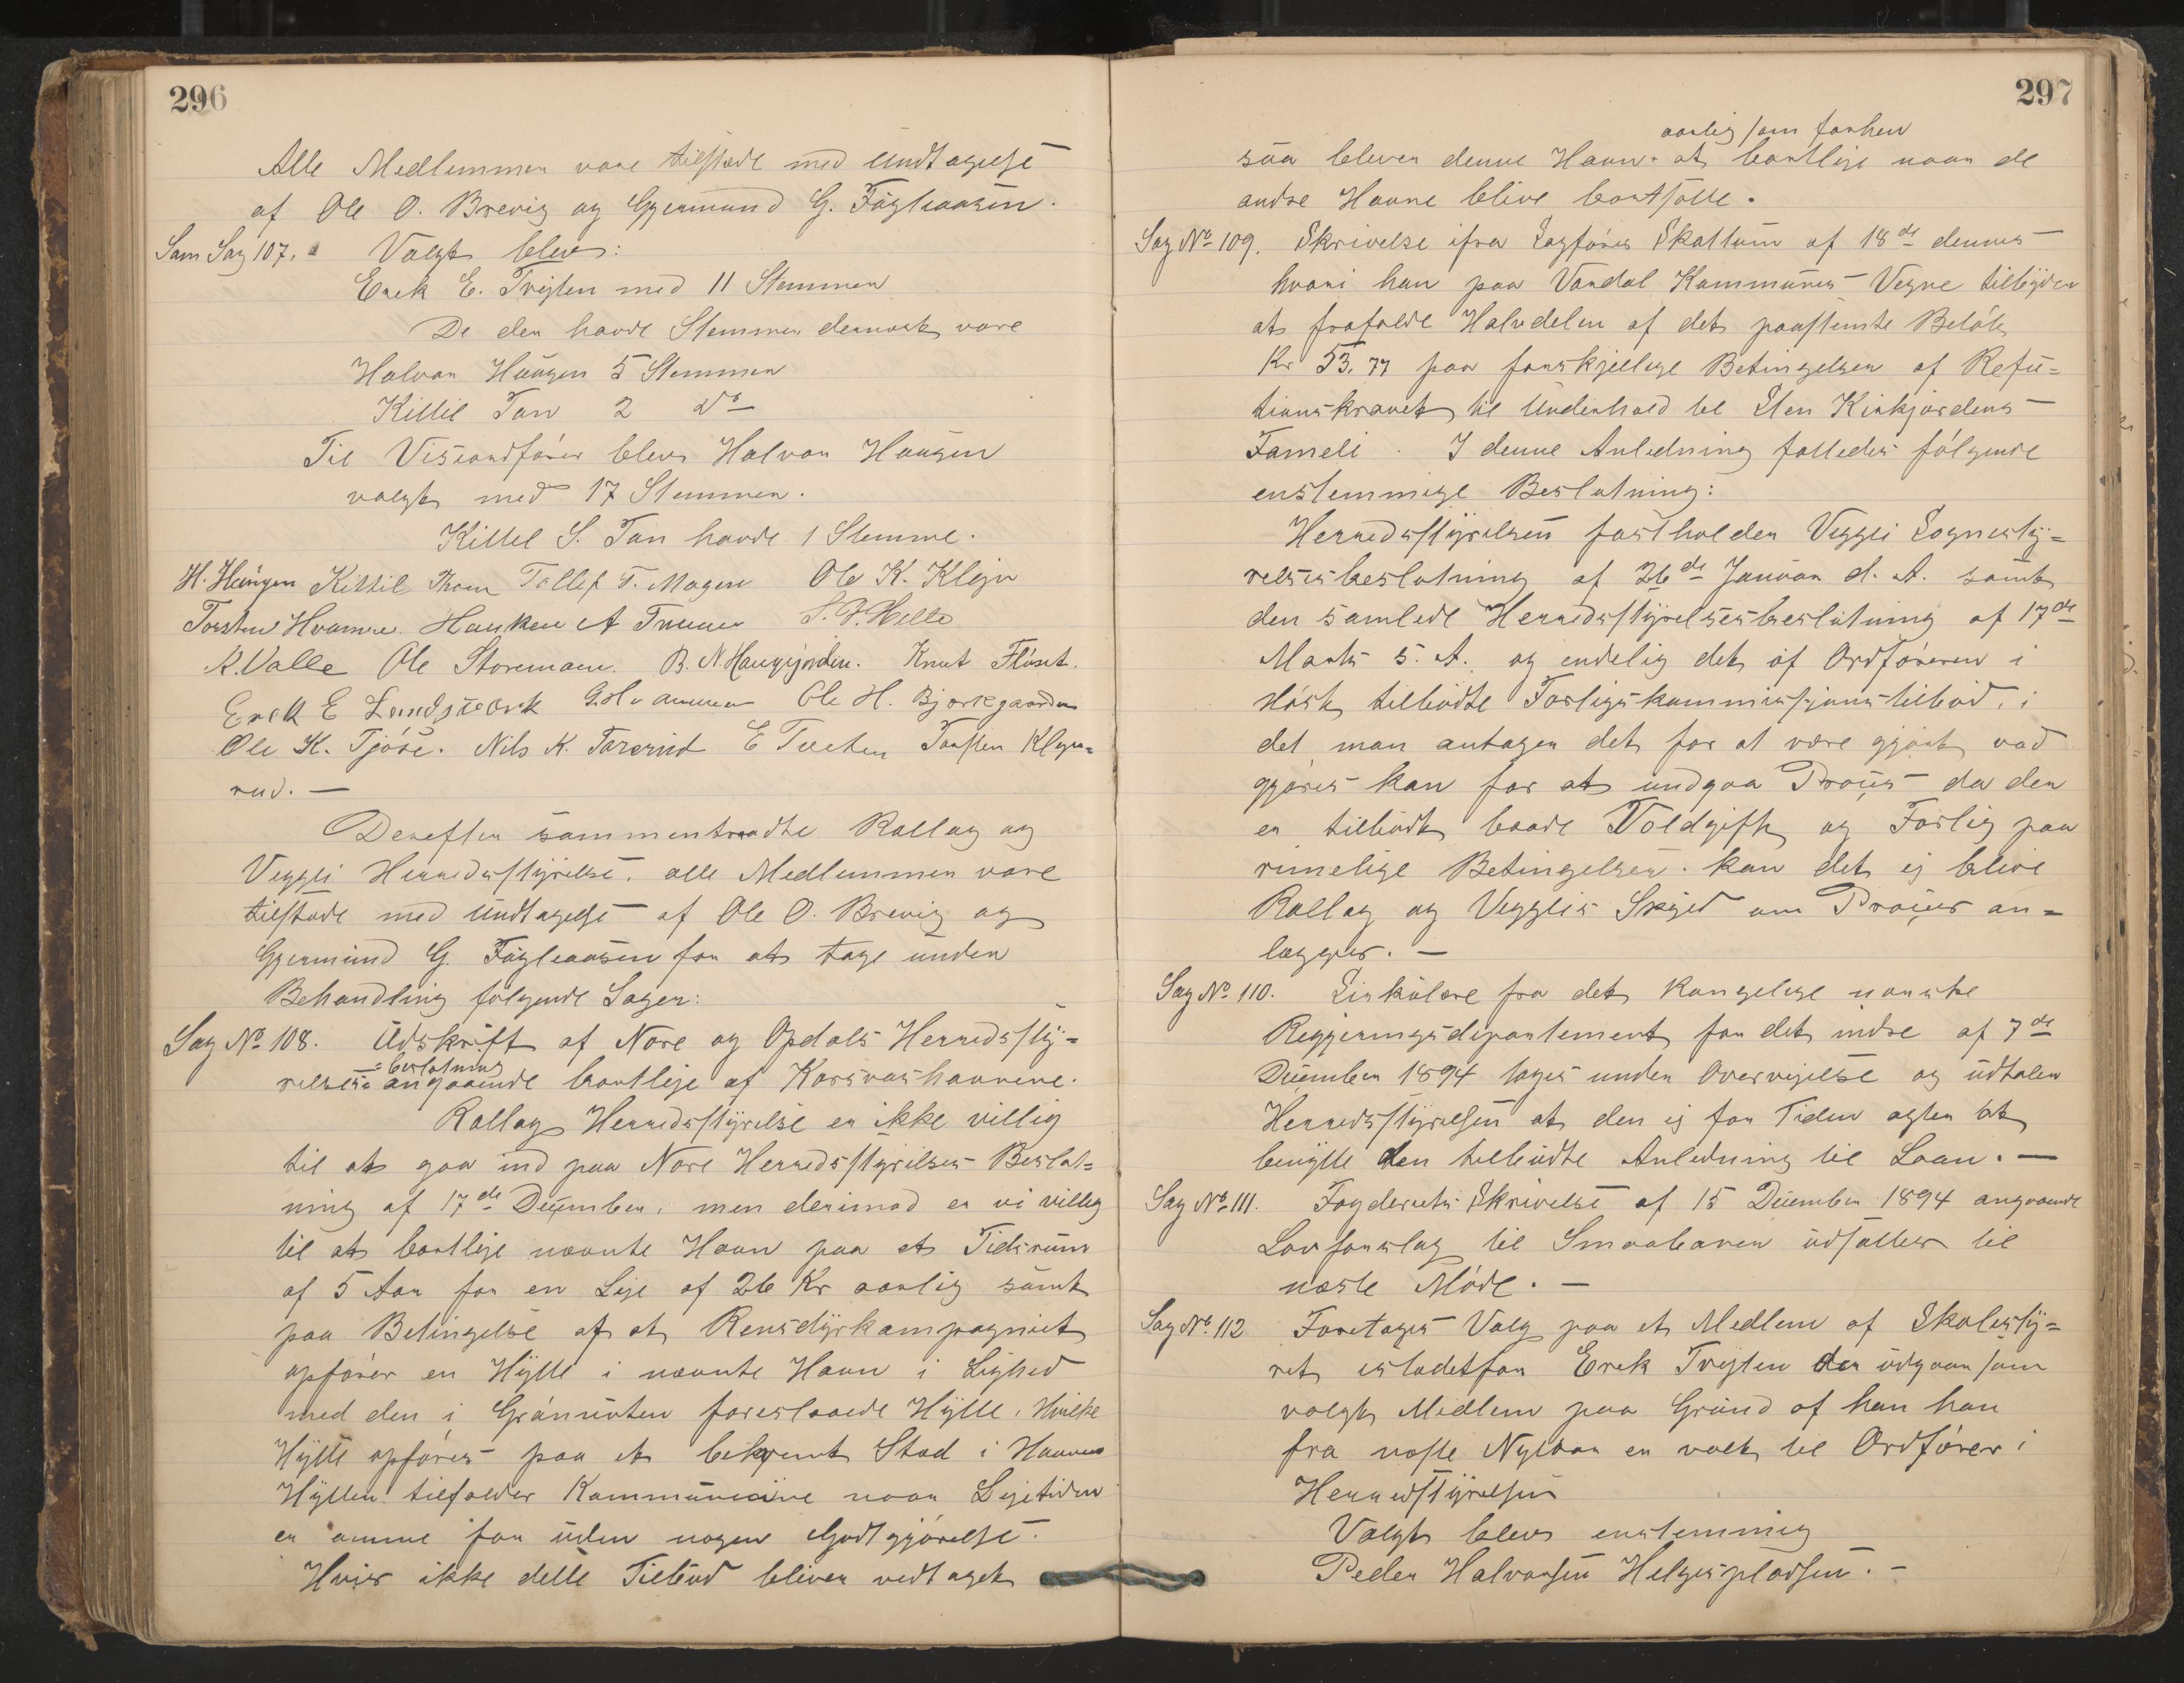 296
Alle Medlemmer vare tilstede med Undtagelse
af Ole O. Brevig og Gjermund G. Fagleaasen.
Sam Sag 107. Valgt blev:
Erek E. Traaten med 11 Stemmer
De der havde Stemmer dernæst vare
Halvor Haugen 5 Stemmer
Kittil Tran 2 do
Til Viseordfører blev Halvor Haugen
valgt med 17 Stemmer.
Kittel S. Tran havde 1 Stemme.
H. Haugen Kittil Traan Tollef T. Mogen Ole K. Kleju
Torsten Hvamme. Hauken A S. P. Helle
K. Valle Ole Storemoen. B. N. Haugjorden. Knut Fløset.
Erek E G. Hvammen Ole H. Bjørkgaarden
Ole K. Tjøse. Nils K. E Traaten Torsten Kleppe-
rud. —
Derefter sammentraadte Rollag og
Veggli Herredsstyrelse, alle Medlemmer vare
tilstede med Undtagelse af Ole O. Brevig og
Gjermund G. Fagleaasen for at tage under
Behandling følgende Sager:
Sag No 108. Udskrift af Nore og Opdals Herredssty-
relses-beslutning angaaende bortleje af Korsvashavnene.
Rollag Herredsstyrelse er ikke villig
til at gaa ind paa Nore Herredsstyrelses Beslut-
ning af 17de December, men derimod er vi villig
til at bortleje nævnte Havn paa et Tidsrum
af 5 Aar for en Leje af 26 Kr aarlig samt
paa Betingelse af at Rensdyrkompagniet
opfører en Hytte i nævnte Havn i Lighed
med den i Grønuten foreslaaede Hytte, Hvilke
Hytte opføres paa et bekvemt Sted i Havnen
Hytten tilfalder Kommunerne naar Lejetiden
er omme for uden nogen Godtgjørelse.
Hvis ikke dette Tilbud bliver vedtaget
297
aarlig som forhen
saa bliver denne Havn at bortleje naar de
andre Havne blive bortsatte.
Sag No 109. Skrivelse ifra Sagfører Skattum af 18de dennes
hvori han paa Vardal Kommunes Vegne tilbyder
at frafalde Halvdelen af det paastemte Beløb
Kr 53.77 paa forskjellige Betingelser af Refu-
tionskravet til Underhold til Sten Kirkjordens
Fameli. I denne Anledning fattedes følgende
enstemmige Beslutning:
Herredsstyrelsen fastholder Veggli Sognesty-
relsesbeslutning af 26de Januar d. A. samt
den samlede Herredsstyrelsesbeslutning af 17de
Marts s. A. og endelig det af Ordføreren i
Høst tilbudte Forligskommissjonstilbud, i
det man antager det for at være gjort vad
gjøres kan for at undgaa Proces da der
er tilbudt baade Voldgift og Forlig paa
rimelige Betingelser. kan det ej blive
Rollag og Vegglis Skyld om Proces an-
lægges. —
Sag No 110. Sirkulære fra det kongelige norske
Regjeringsdepartement for det indre af 7de
December 1894 toges under Overvejelse og udtaler
Herredsstyrelsen at den ej for Tiden agter at
benytte den tilbudte Anledning til Laan. —
Sag No 111. Fogderiets Skrivelse af 15 December 1894 angaaende
Lovforslag til Smaabarn udsættes til
næste Møde. —
Sag No 112 Foretoges Valg paa et Medlem af Skolesty-
ret istedetfor Erek Traaten der udgaar som
valgt Medlem paa Grund af han har
fra næste Nytaar er valt til Ordfører i
Herredsstyrelsen
Valgt blev enstemmig
Peder Halvorsen Helgespladsen. —